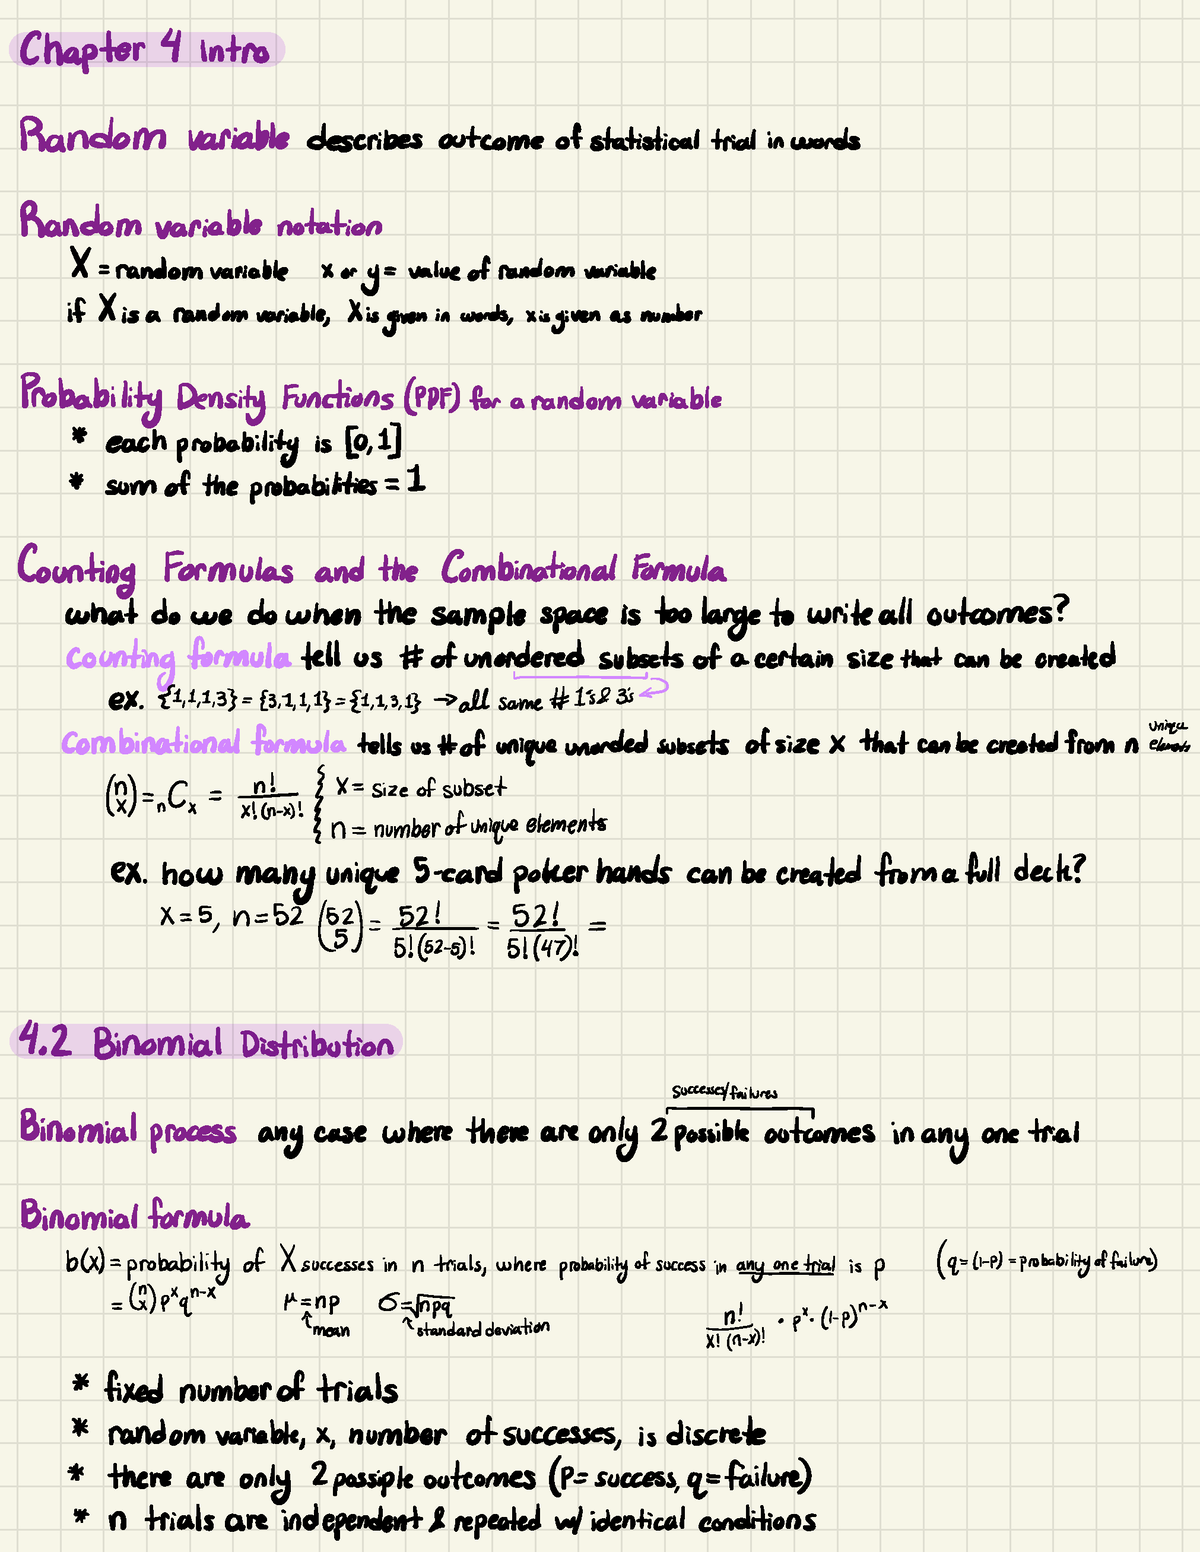 Chapter 4 intro
Random variable describes outcome of statistical trial in words
Random variable notation
X = random variable x or y = value of random variable
if X is a random variable, X is given in words, x is given as number
Probability Density Functions (PDF) for a random variable
* each probability is [0,1]
* sum of the probabilities = 1
Counting Formulas and the Combinational Formula
what do we do when the sample space is too large to write all outcomes?
counting formula tell us # of unordered subsets of a certain size that can be created
ex. {1,1,1,3} = {3,1,1,1} = {1,1,3,1} → all same # 1's & 3's
Combinational formula tells us # of unique unorded subsets of size x that can be created from n unique elements
(n x) = nCx = n! / x!(n-x)! { x = size of subset
n = number of unique elements
ex. how many unique 5-card poker hands can be created from a full deck?
x = 5, n = 52 (52 5) = 52! / 5!(52-5)! = 52! / 5!(47)! =
4.2 Binomial Distribution
successes/failures
Binomial process any case where there are only 2 possible outcomes in any one trial
Binomial formula
b(x) = probability of X successes in n trials, where probability of success in any one trial is p (q = (1-p) = probability of failure)
= (n x) p^x q^n-x μ = np σ = √npq n! / x!(n-x)! · p^x · (1-p)^n-x
↑ mean ↑ standard deviation
* fixed number of trials
* random variable, x, number of successes, is discrete
* there are only 2 possiple outcomes (p = success, q = failure)
* n trials are independent & repeated w/ identical conditions